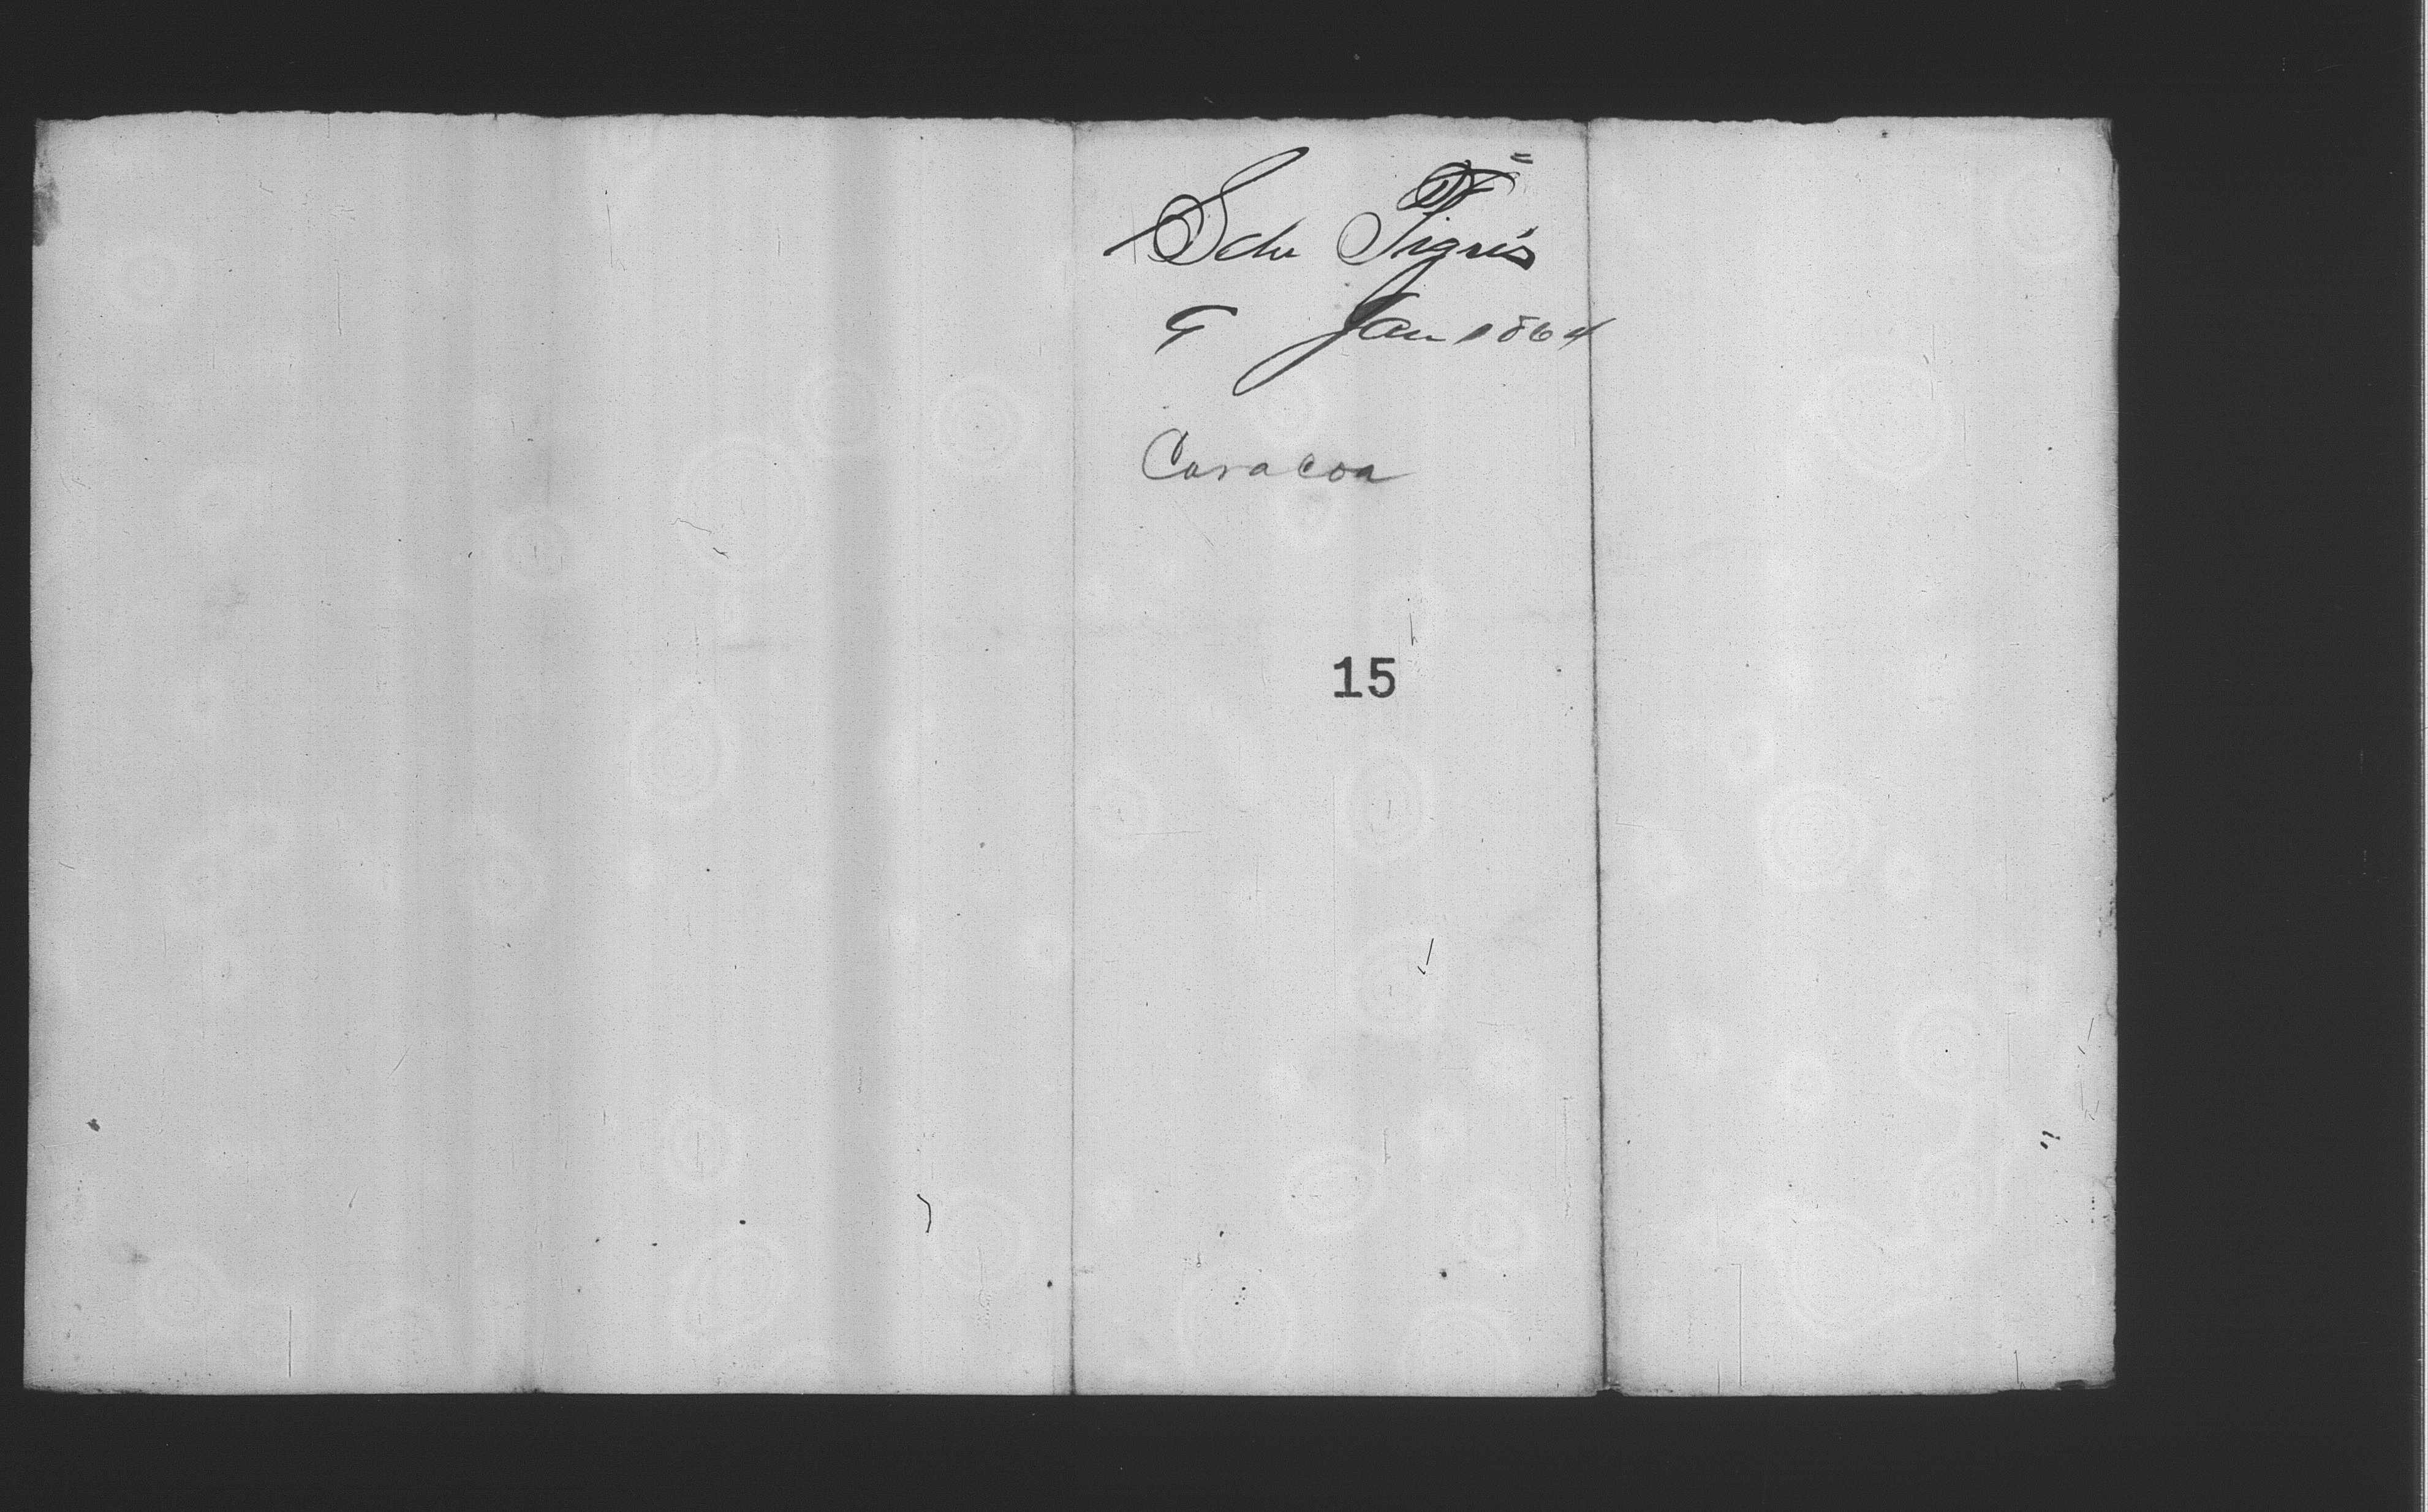 Schr Tigris
9 Jan 1864
Curacoa
15